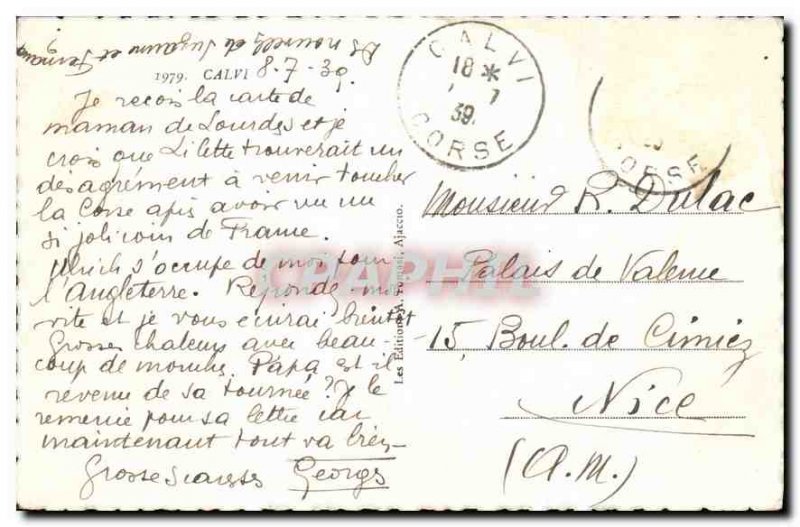 Des nouvelles de Suzanne et Fernand ?
1979. CALVI 8-7-39.
Je reçois la carte de
maman de Lourdes et je
crois que Lilette trouverait un
désagrément à venir toucher
la Corse après avoir vu un
si joli coin de France.
Ulrich s'occupe de moi pour
l'Angleterre. Réponds-moi
vite et je vous écrirai bientôt
Grosses chaleurs avec beau-
coup de mouches. Papa est il
revenu de sa tournée? Je le
remercie pour sa lettre car
maintenant tout va bien-
Grosses caresses Georges
Les Editions A. Tomasi, Ajaccio.
CALVI
18 *
7
39.
CORSE
CORSE
Monsieur R. Dulac
Palais de Valence
15, Boul. de Cimiez
Nice
(A.M.)
CPAPHIL